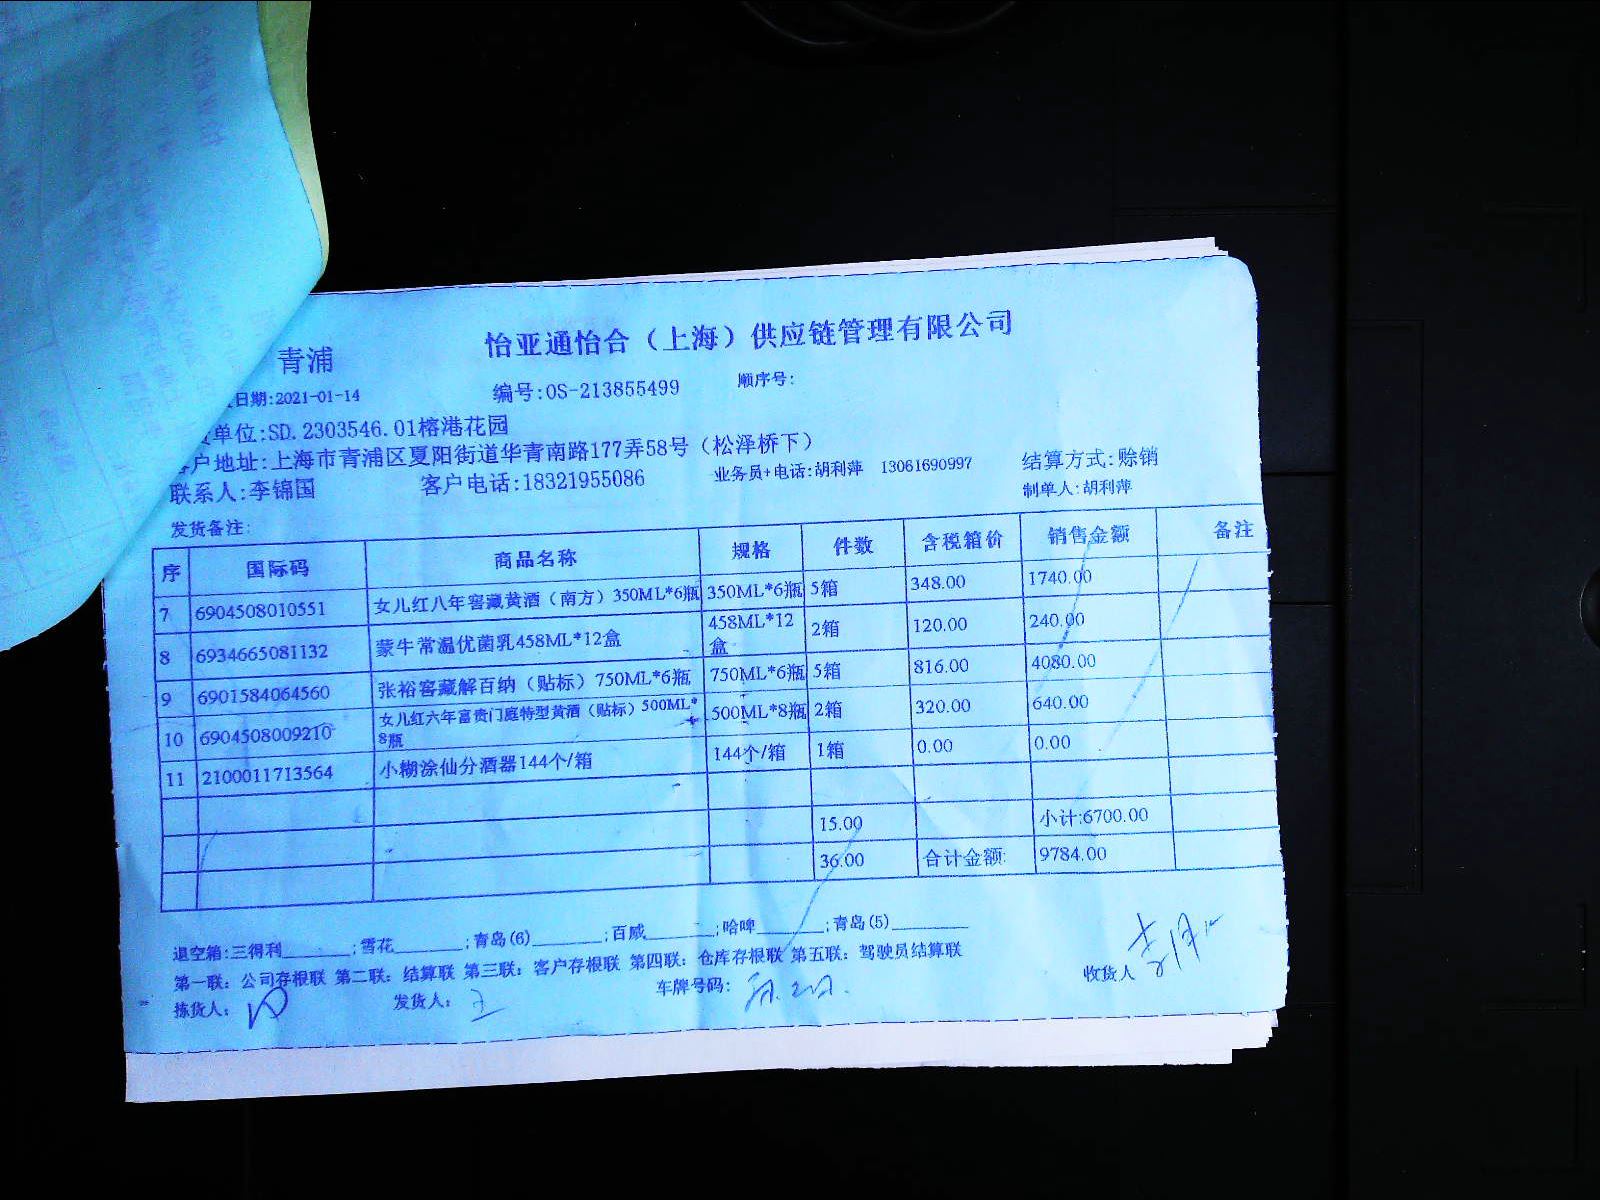 怡亚通怡合（上海）供应链管理有限公司
青浦
日期:2021-01-14 编号:OS-213855499 顺序号:
单位:SD.2303546.01榕港花园
户地址:上海市青浦区夏阳街道华青南路177弄58号（松泽桥下）
联系人:李锦国 客户电话:18321955086 业务员+电话:胡利萍 13061690997 结算方式:赊销
制单人:胡利萍
发货备注:
序 国际码 商品名称 规格 件数 含税箱价 销售金额 备注
7 6904508010551 女儿红八年窖藏黄酒（南方）350ML*6瓶 350ML*6瓶 5箱 348.00 1740.00
8 6934665081132 蒙牛常温优菌乳458ML*12盒 458ML*12盒 2箱 120.00 240.00
9 6901584064560 张裕窖藏解百纳（贴标）750ML*6瓶 750ML*6瓶 5箱 816.00 4080.00
10 6904508009210 女儿红六年富贵门庭特型黄酒（贴标）500ML*8瓶 500ML*8瓶 2箱 320.00 640.00
11 2100011713564 小糊涂仙分酒器144个/箱 144个/箱 1箱 0.00 0.00
15.00 小计:6700.00
36.00 合计金额: 9784.00
退空箱:三得利______;雪花______;青岛(6)______;百威______;哈啤______;青岛(5)______
第一联：公司存根联 第二联：结算联 第三联：客户存根联 第四联：仓库存根联 第五联：驾驶员结算联
拣货人： 发货人： 车牌号码： 收货人